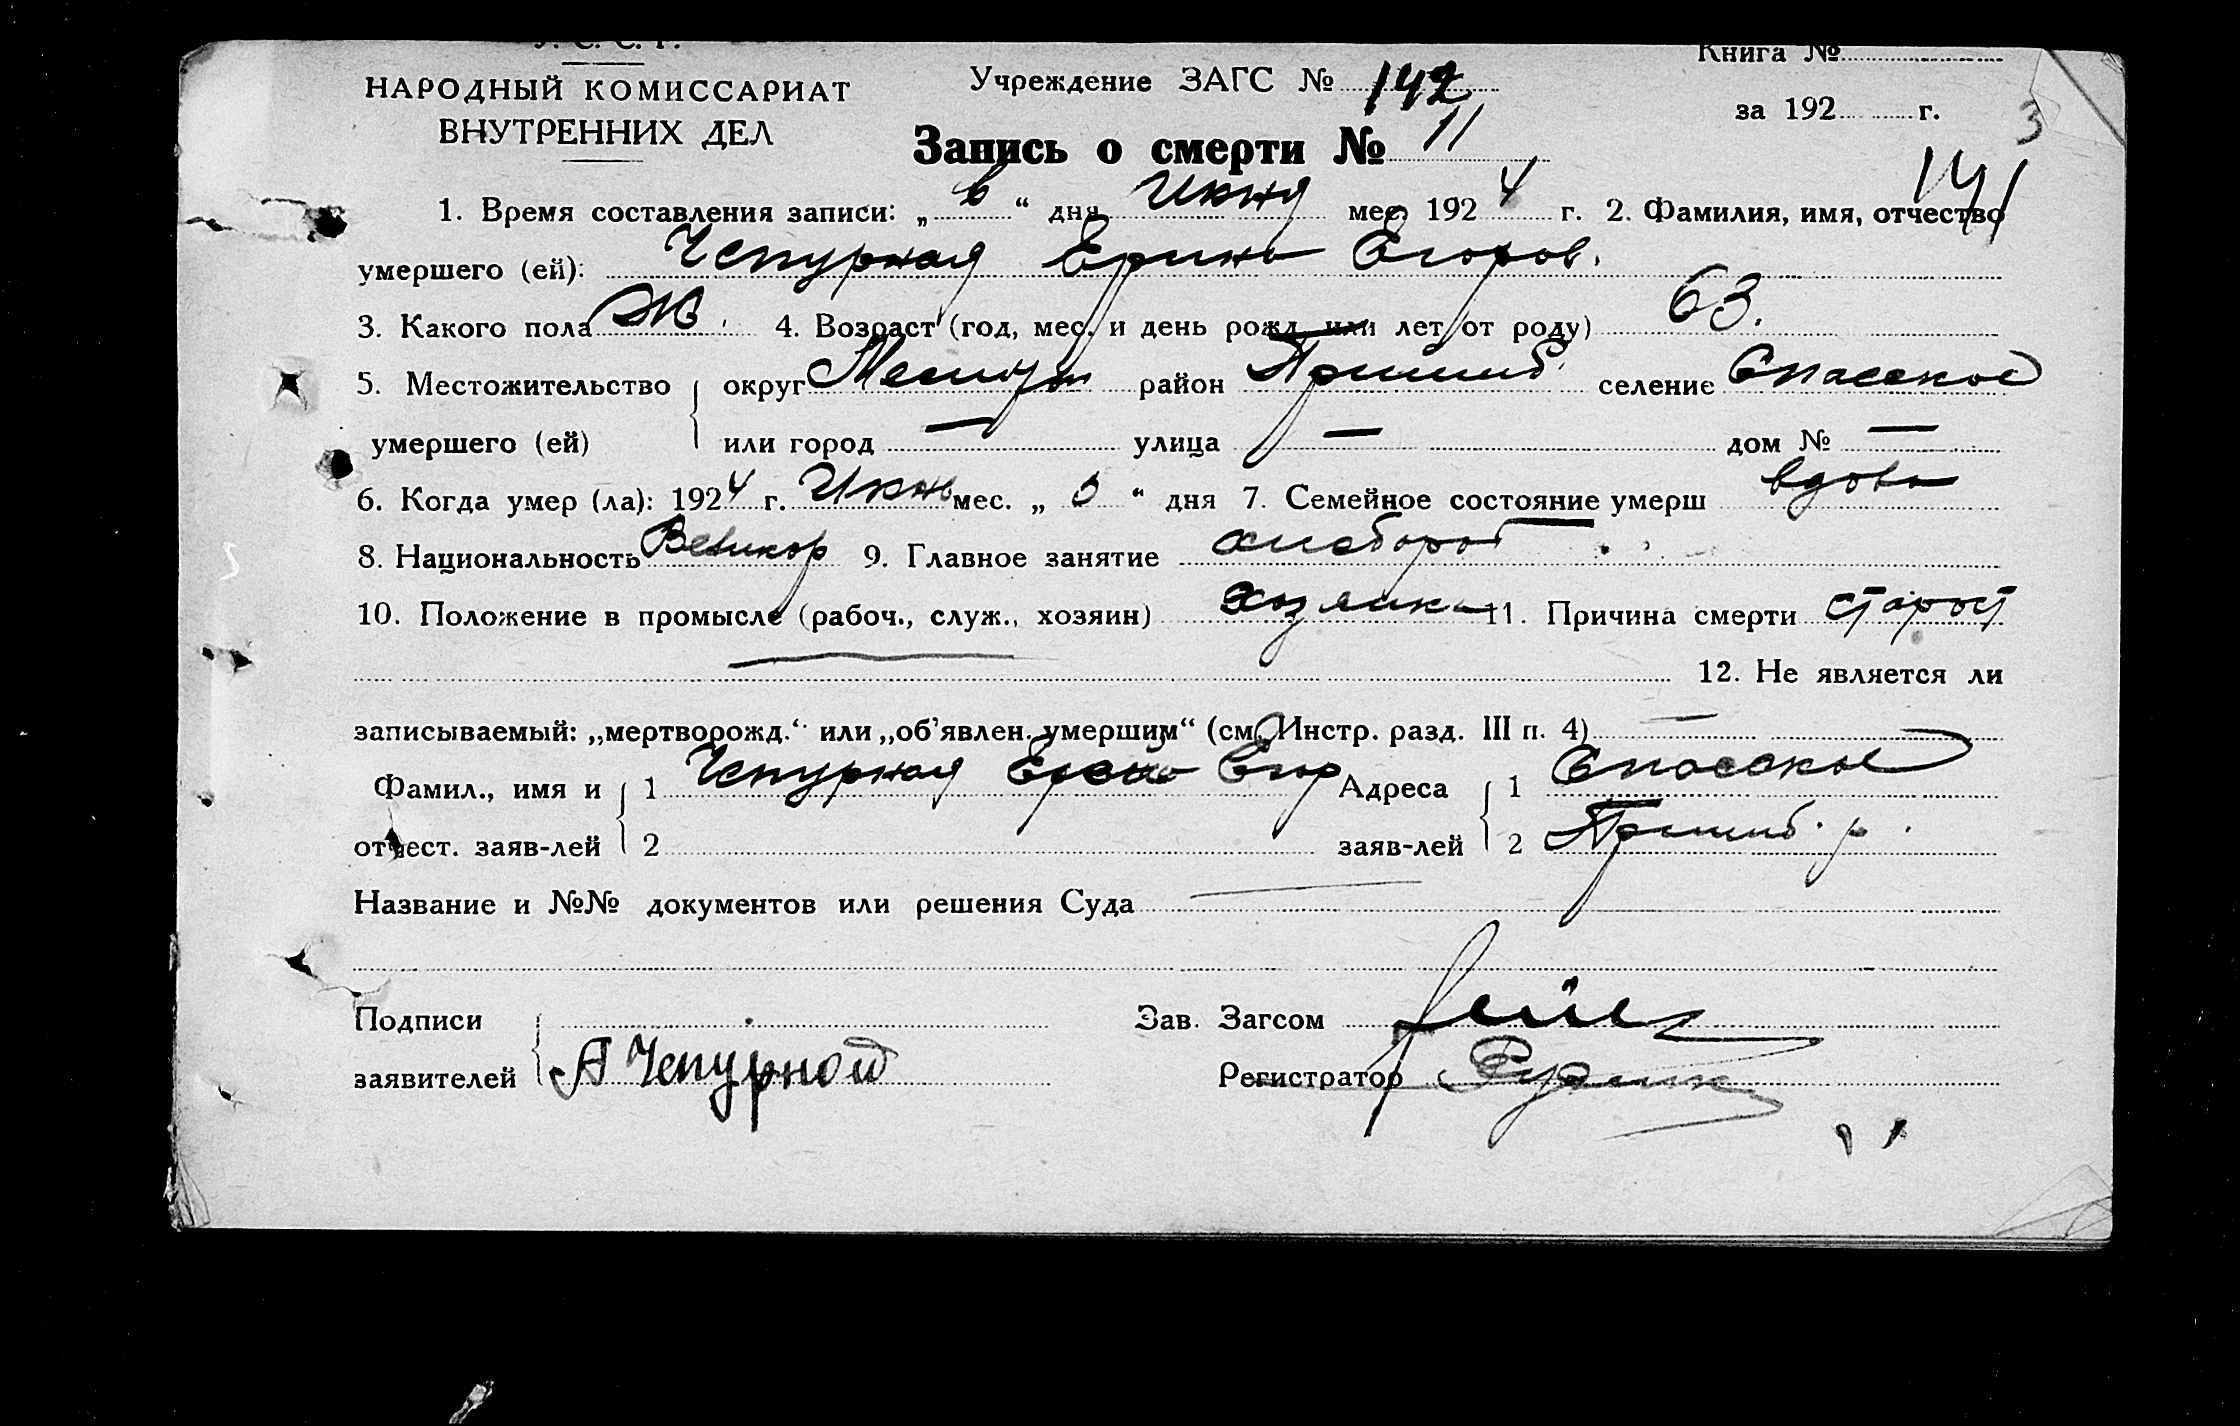 У. С. С. Р.
НАРОДНЫЙ КОМИССАРИАТ
ВНУТРЕННИХ ДЕЛ
Учреждение ЗАГС № 142
Запись о смерти № 11
Книга №
за 192 г. 3
141
1. Время составления записи: „ 6 “ дня Июня мес. 1924 г. 2. Фамилия, имя, отчество
умершего (ей): Чепурная Ерина Егоров.
3. Какого пола Ж. 4. Возраст (год, мес. и день рожд. или лет от роду) 63.
5. Местожительство округ район Пришиб. селение Спасское
умершего (ей) или город — улица — дом № —
6. Когда умер (ла): 1924 г. Июнь мес. „ 5 “ дня 7. Семейное состояние умерш вдова
8. Национальность Великор 9. Главное занятие хлебороб
10. Положение в промысле (рабоч., служ., хозяин) хозяйка 11. Причина смерти старост
12. Не является ли
записываемый: „мертворожд.“ или „об’явлен. умершим“ (см. Инстр. разд. III п. 4) —
Фамил., имя и 1 Чепурная Егор Адреса 1 Спасское
отчест. заяв-лей 2 заяв-лей 2 Пришиб. р.
Название и №№ документов или решения Суда —
Подписи Зав. Загсом
заявителей А Чепурной Регистратор